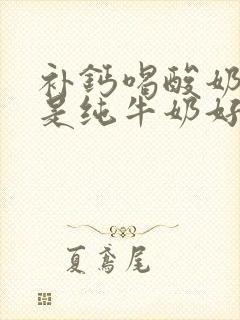 补钙喝酸奶
是纯牛奶好
夏鸢尾